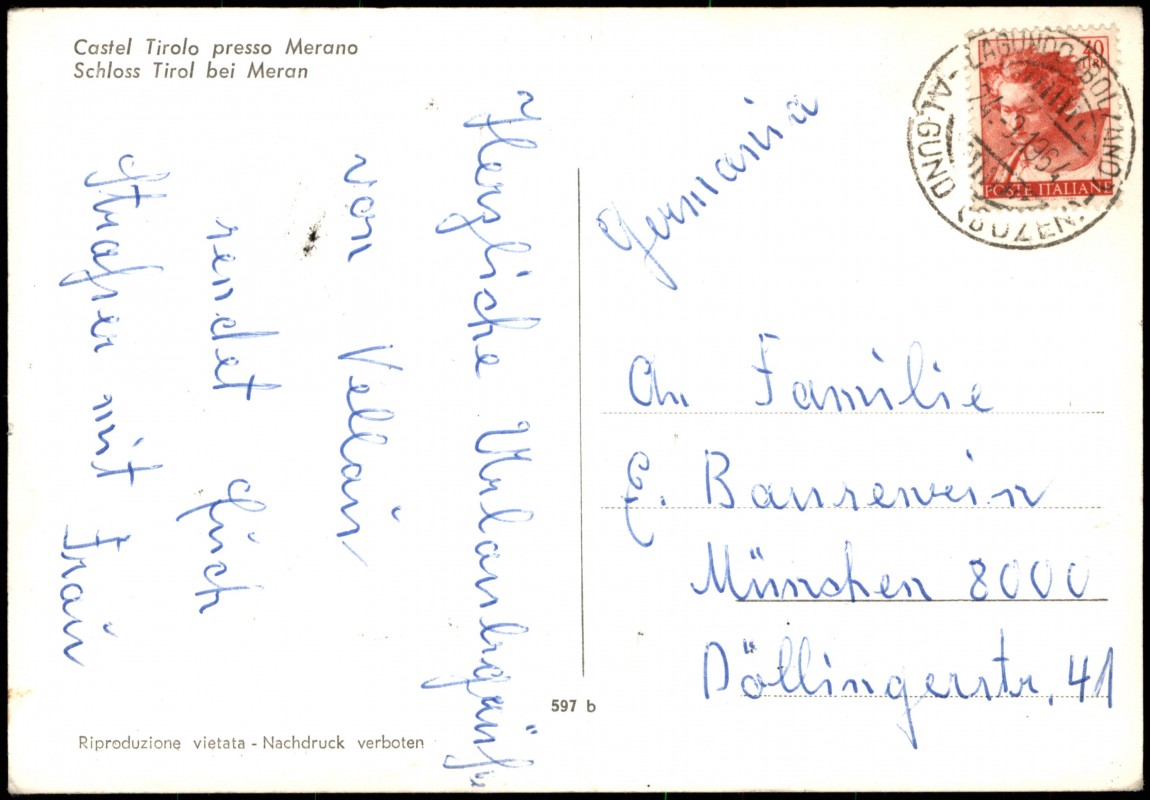 Castel Tirolo presso Merano
Schloss Tirol bei Meran
Herzliche Urlaubsgrüße
von Vellau
sendet Euch
Straßer mit Frau
Germania
An Familie
E. Bausewein
München 8000
Döllingerstr. 41
40
POSTE ITALIANE
LAGUNDO (BOLZANO)
-9.1964
ALGUND (BOZEN)
597 b
Riproduzione vietata - Nachdruck verboten